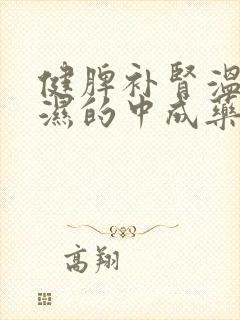 健脾补肾温
濕的中成藥
高翔